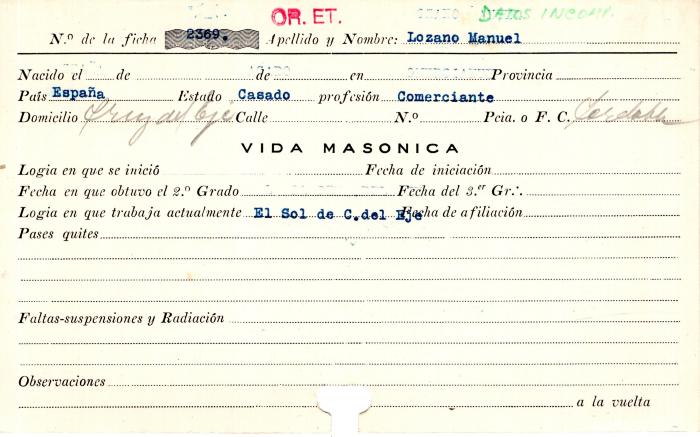 OR. ET. DATOS INCOMP.
N.º de la ficha 2369. Apellido y Nombre: Lozano Manuel
Nacido el de de en Provincia
País España Estado Casado profesión Comerciante
Domicilio Cruz del Eje Calle N.º Pcia. o F. C. Cordoba
VIDA MASONICA
Logia en que se inició Fecha de iniciación
Fecha en que obtuvo el 2.º Grado Fecha del 3.er Gr∴
Logia en que trabaja actualmente El Sol de C.del Eje Fecha de afiliación
Pases quites
Faltas-suspensiones y Radiación
Observaciones
a la vuelta